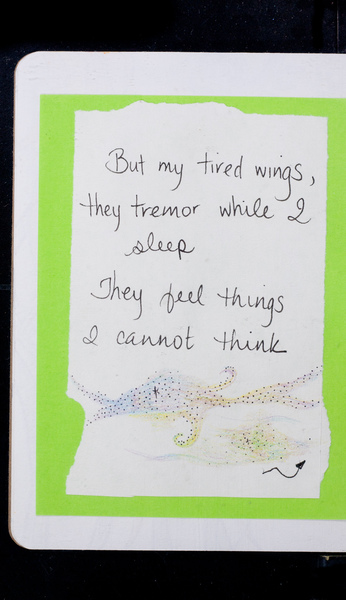 But my tired wings,
they tremor while I
sleep
They feel things
I cannot think